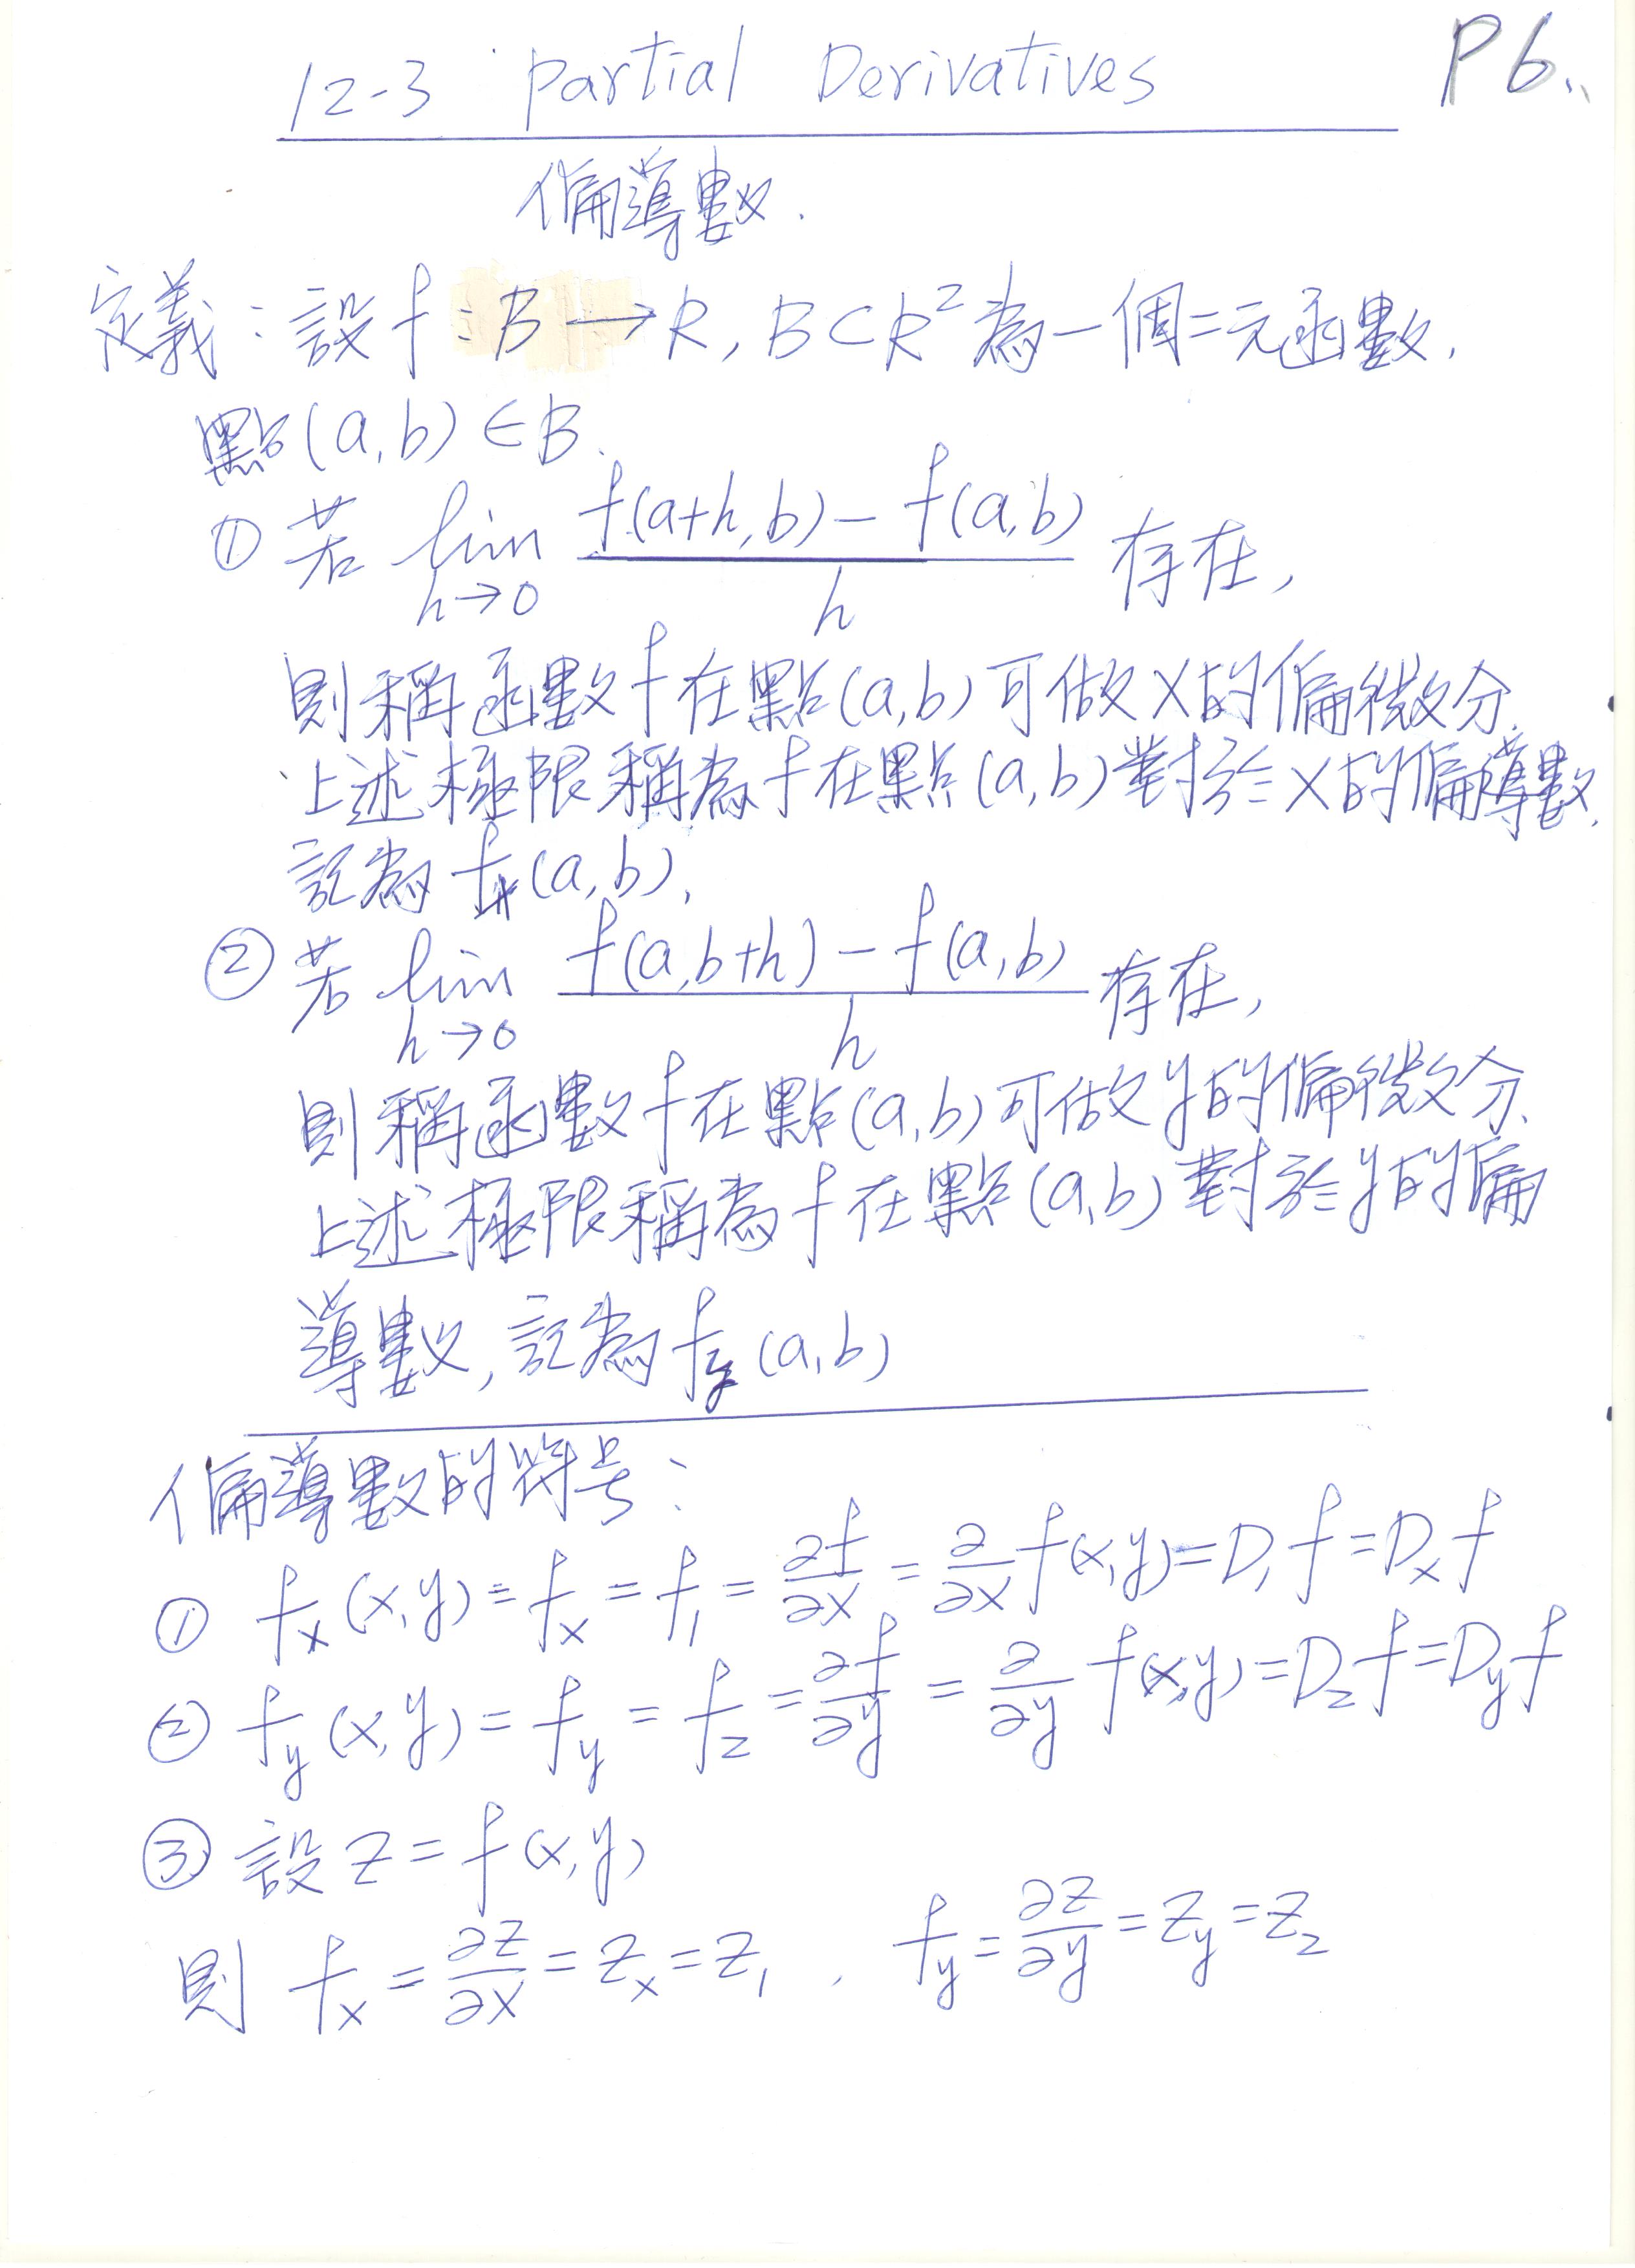 P6..
12-3 Partial Derivatives
偏導數.
定義:設 f : B → R, B⊂R² 為一個二元函數.
點(a,b)∈B.
① 若 lim_{h→0} \frac{f(a+h,b)-f(a,b)}{h} 存在,
則稱函數f在點(a,b)可做x的偏微分.
上述極限稱為f在點(a,b)對於x的偏導數.
記為 f_x(a,b).
② 若 lim_{h→0} \frac{f(a,b+h)-f(a,b)}{h} 存在,
則稱函數f在點(a,b)可做y的偏微分.
上述極限稱為f在點(a,b)對於y的偏
導數,記為 f_y(a,b)
偏導數的符号:
① f_x(x,y)=f_x=f_1=\frac{∂f}{∂x}=\frac{∂}{∂x}f(x,y)=D_1f=D_xf
② f_y(x,y)=f_y=f_2=\frac{∂f}{∂y}=\frac{∂}{∂y}f(x,y)=D_2f=D_yf
③ 設 z=f(x,y)
則 f_x=\frac{∂z}{∂x}=z_x=z_1 , f_y=\frac{∂z}{∂y}=z_y=z_2